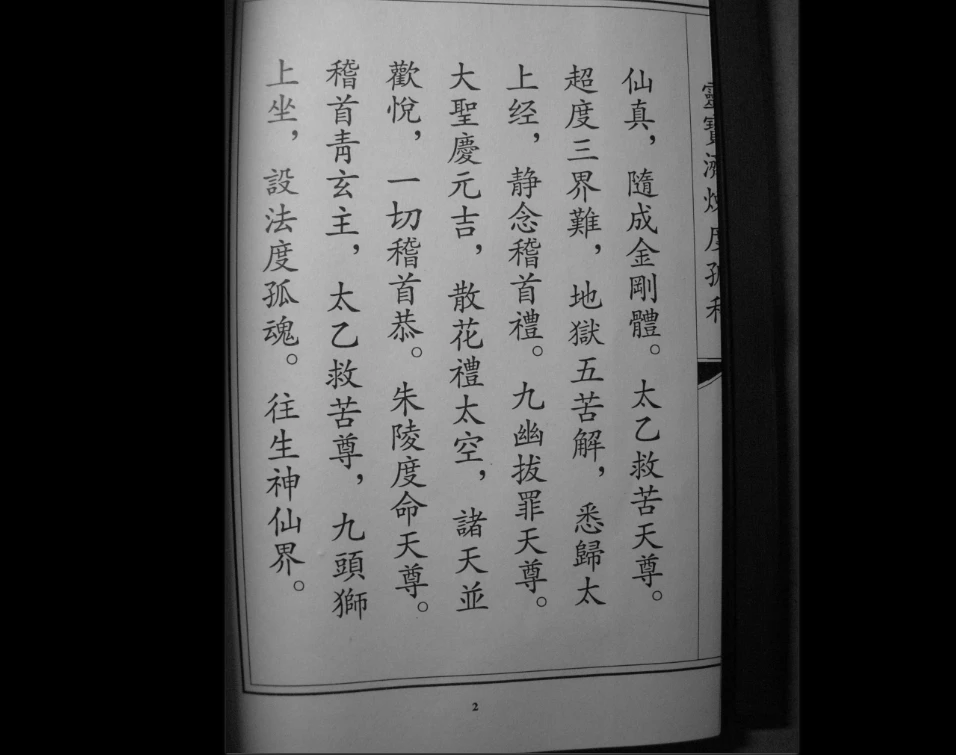 靈寶濟煉度孤科
仙真，隨成金剛體。太乙救苦天尊。
超度三界難，地獄五苦解，悉歸太
上经，静念稽首禮。九幽拔罪天尊。
大聖慶元吉，散花禮太空，諸天並
歡悅，一切稽首恭。朱陵度命天尊。
稽首青玄主，太乙救苦尊，九頭獅
上坐，設法度孤魂。往生神仙界。
2